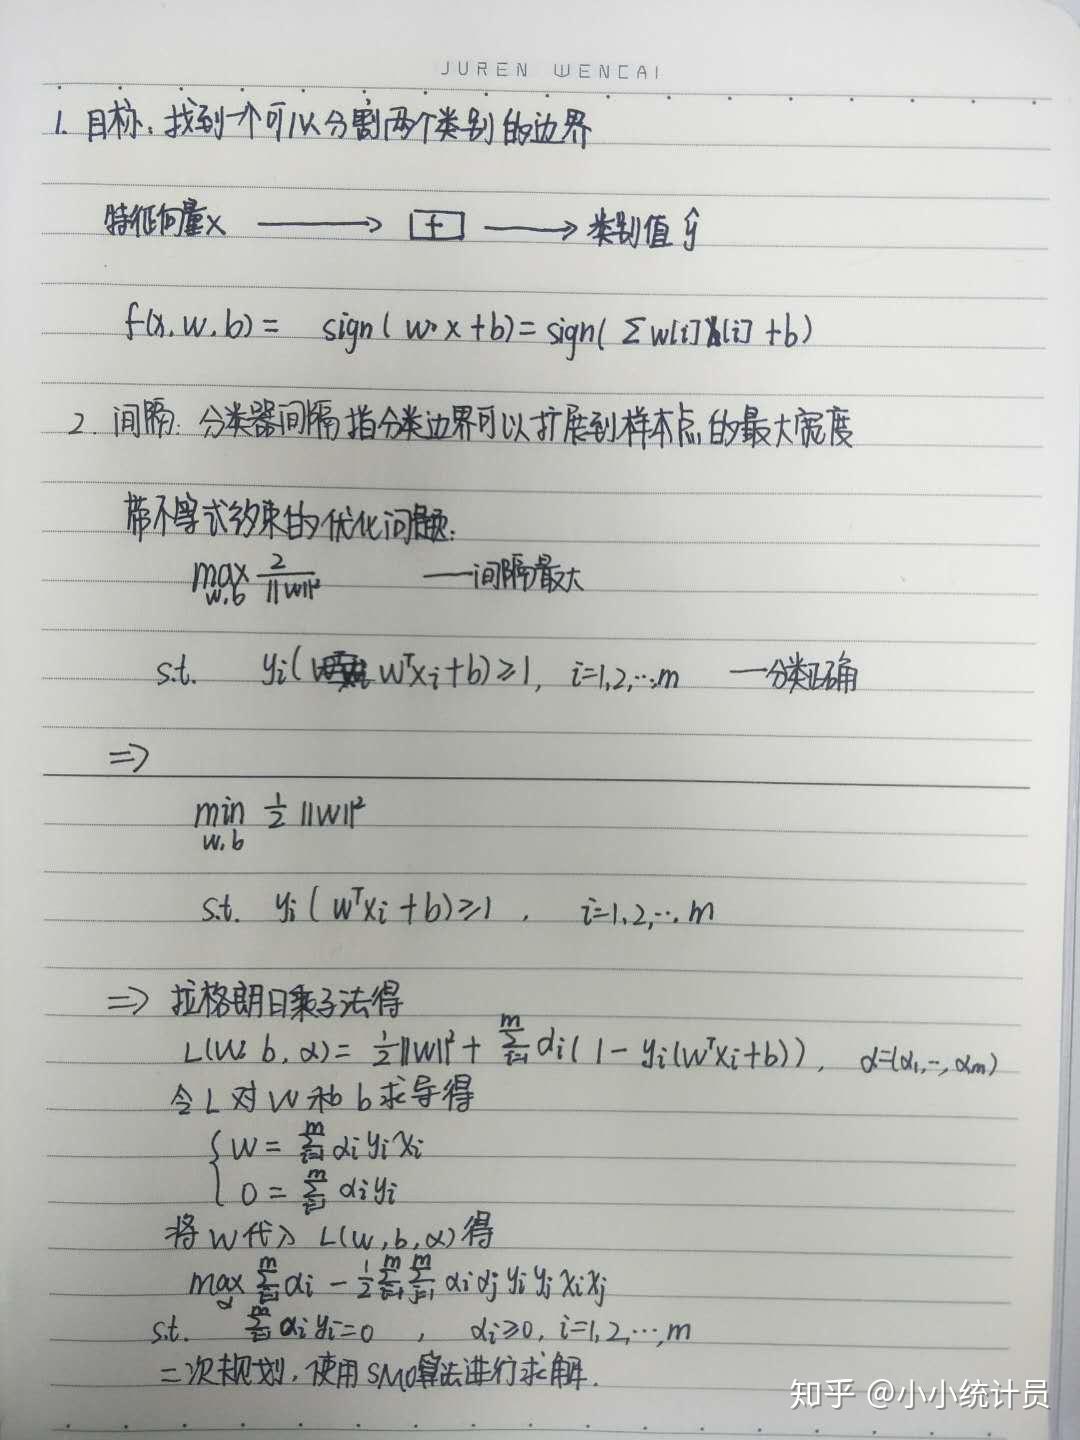 JUREN WENCAI
1. 目标：找到一个可以分割两个类别的边界
特征向量x ⟶ f ⟶ 类别值 ŷ
f(x, w, b) = sign( w·x + b) = sign( Σ w[i]x[i] + b)
2. 间隔：分类器间隔指分类边界可以扩展到样本点的最大宽度
带不等式约束的优化问题：
max_{w,b} 2/||w||² ——间隔最大
s.t. yi( wᵀxi + b) ≥ 1, i=1,2,…,m —分类正确
⇒
min_{w,b} 1/2 ||w||²
s.t. yi ( wᵀxi + b) ≥ 1 , i=1,2,…,m
⇒ 拉格朗日乘子法得
L(w, b, α) = 1/2||w||² + Σ_{i=1}^{m} αi( 1 - yi(wᵀxi + b)), α=(α1,…,αm)
令 L 对 w 和 b 求导得
{ w = Σ_{i=1}^{m} αi yi xi
0 = Σ_{i=1}^{m} αi yi
将 w 代入 L(w, b, α) 得
max_α Σ_{i=1}^{m} αi - 1/2 Σ_{i=1}^{m} Σ_{j=1}^{m} αi αj yi yj xi xj
s.t. Σ_{i=1}^{m} αi yi = 0 , αi ≥ 0, i=1,2,…,m
二次规划，使用SMO算法进行求解.
知乎 @小小统计员